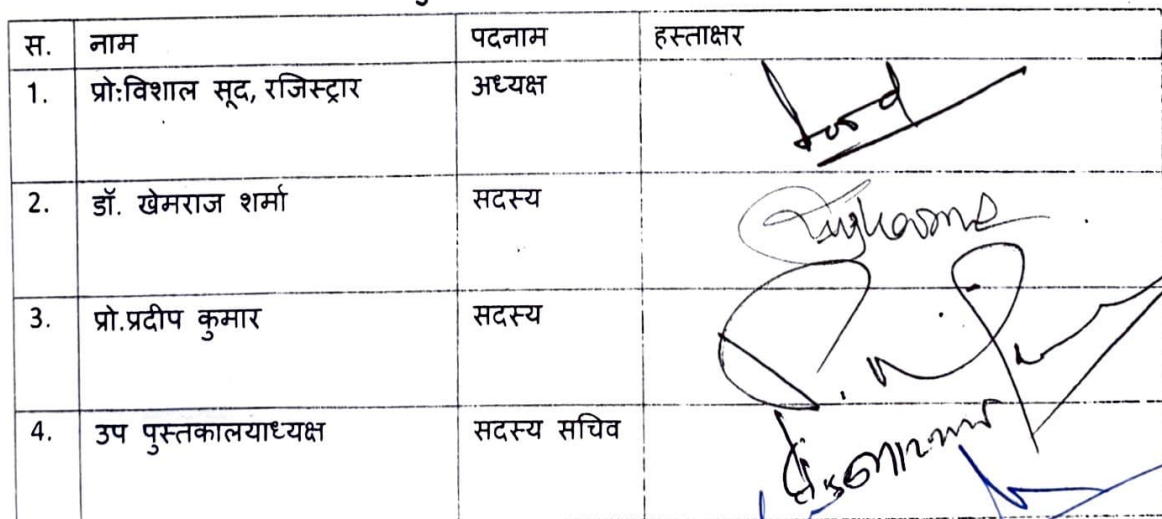 स. नाम पदनाम हस्ताक्षर
1. प्रो:विशाल सूद, रजिस्ट्रार अध्यक्ष
2. डॉ. खेमराज शर्मा सदस्य
3. प्रो.प्रदीप कुमार सदस्य
4. उप पुस्तकालयाध्यक्ष सदस्य सचिव